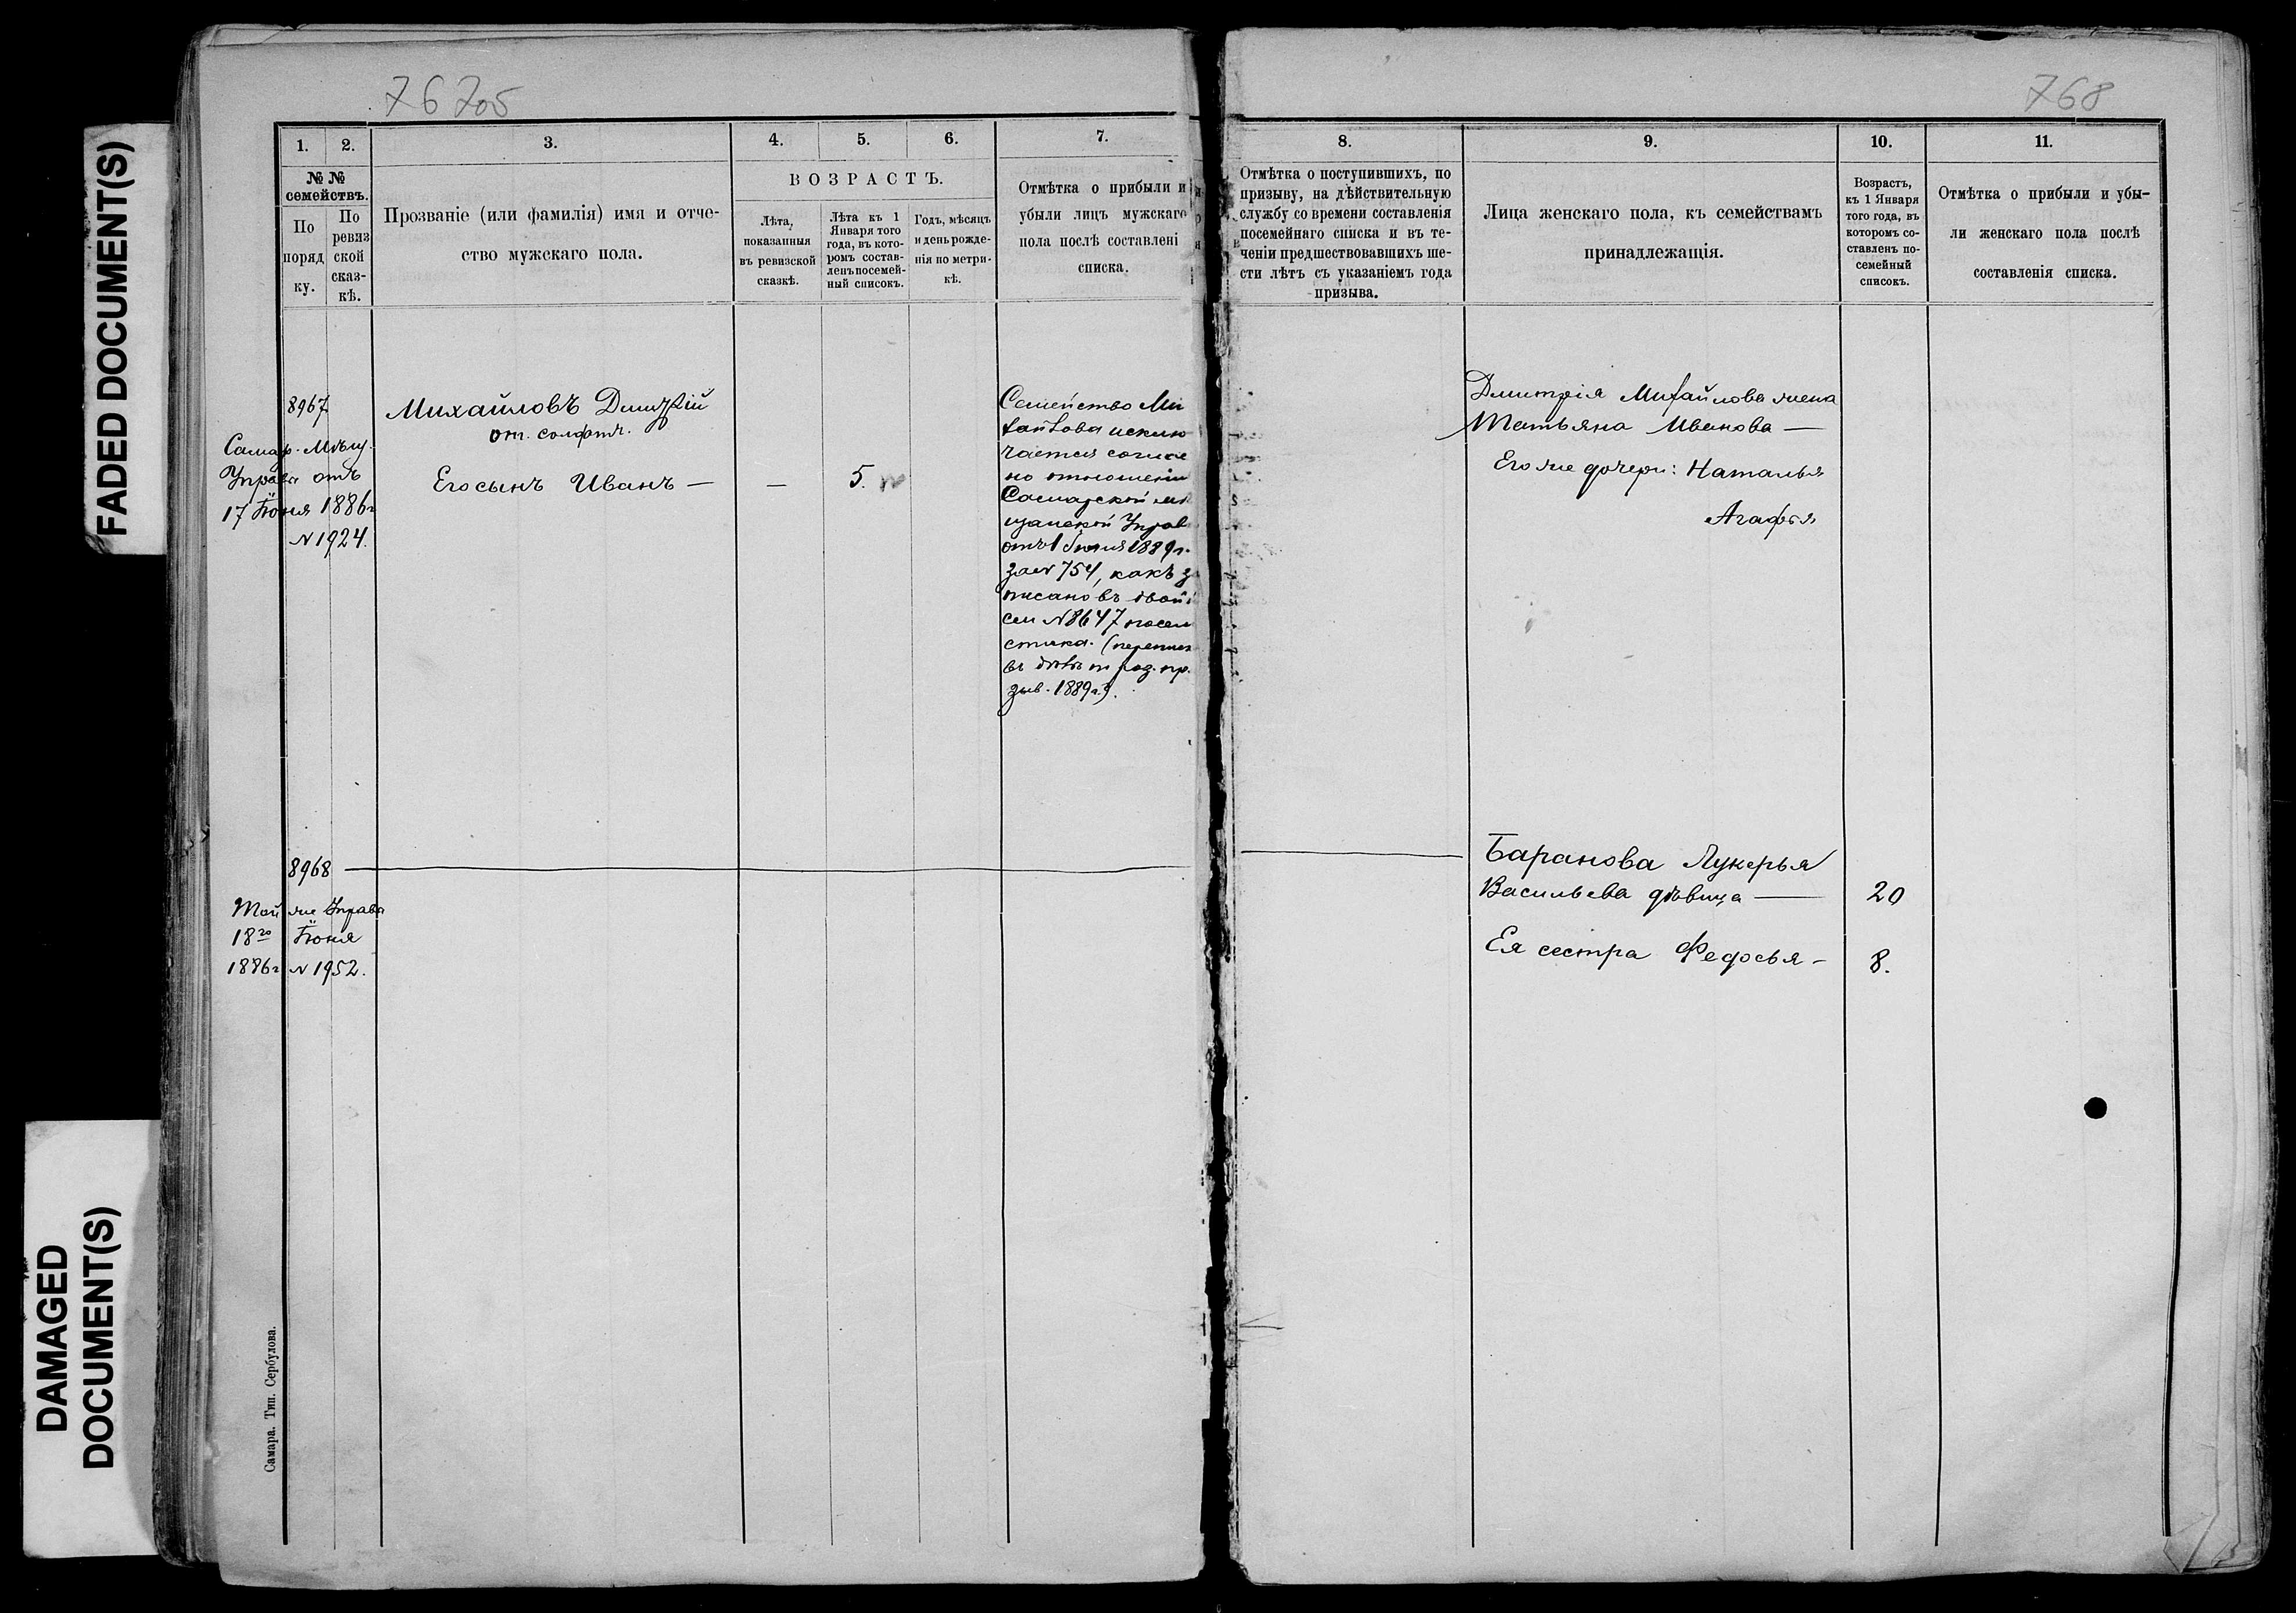 FADED DOCUMENT(S)
DAMAGED
DOCUMENT(S)
76705
1.
2.
3.
4.
5.
6.
7.
№ №
семействъ.
По
поряд
ку.
По
ревиз
ской
сказ-
кѣ.
Прозваніе (или фамилія) имя и отче-
ство мужскаго пола.
ВОЗРАСТЪ.
Лѣта,
показанныя
въ ревизской
сказкѣ.
Лѣта къ 1
Января того
года, въ кото-
ромъ состав-
ленъ посемей-
ный списокъ.
Годъ, мѣсяцъ
и день рожде-
нія по метри-
кѣ.
Отмѣтка о прибыли и
убыли лицъ мужскаго
пола послѣ составлені
списка.
8967
Самар. Мѣщ.
Управы отъ
17 Іюня 1886г
N 1924.
Михайловъ Дмитрій
от. солдатъ.
Его сынъ Иванъ —
—
5.
Семейство Ми
хайлова исклю
чается соглас
но отношенію
Самарской мѣ
щанской Управ
отъ 1 Іюня 1889г.
за N 754, какъ з
писано въ
сем N 8647 посем
списка. (
зыв. 1889г.).
8968
Той же Управы
18го Іюня
1886г N 1952.
Самара. Тип. Сербулова.
768
8.
9.
10.
11.
Отмѣтка о поступившихъ, по
призыву, на дѣйствительную
службу со времени составленія
посемейнаго списка и въ те-
ченіи предшествовавшихъ ше-
сти лѣтъ съ указаніемъ года
призыва.
Лица женскаго пола, къ семействамъ
принадлежащія.
Возрастъ,
къ 1 Января
того года, въ
которомъ со-
ставленъ по-
семейный
списокъ.
Отмѣтка о прибыли и убы-
ли женскаго пола послѣ
составленія списка.
Дмитрія Михайлова жена
Татьяна Иванова —
Его же дочери: Наталья
Агафья
Баранова Лукерья
Васильева дѣвица — 20
Ея сестра Федосья — 8.